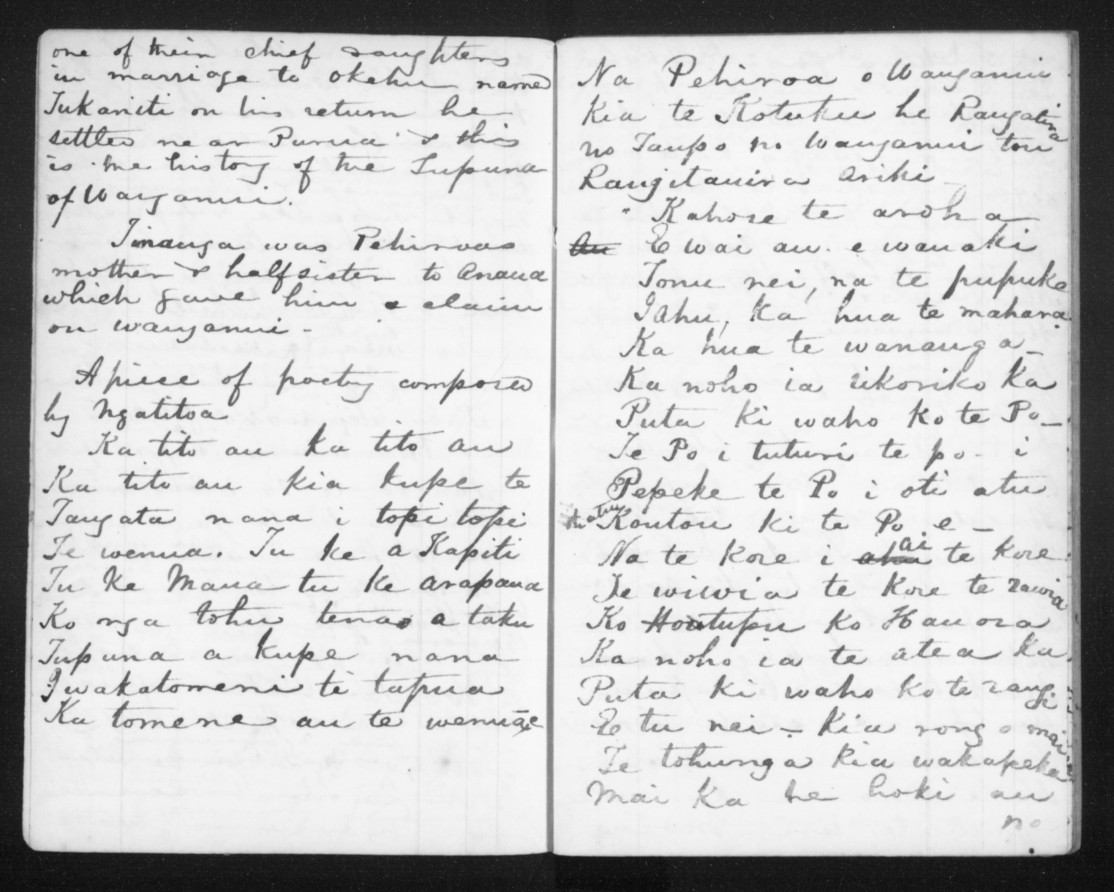 one of their chief daughters
in marriage to Okehu named
Tukariti on his return he
settled near Purua & this
is the history of the Tupuna
of Wanganui.
Tinanga was Pehiroas
mother & half sister to Anaua
which gave him a claim
on wanganui -
A piese of poetry composed
by Ngatitoa
Ka tito au ka tito au
Ka tito au kia kupe te
Tangata nana i topi topi
Te wenua. Tu ke a Kapiti
Tu ke Mana tu ke arapaua
Ko nga tohu tena a taku
Tupuna a kupe nana
I wakatomeni te tapua
Ka tomene au te wenuae
Na Pehiroa o Wanganui
Kia te Kotuku he Rangatira
no Taupo no Wanganui tou
Rangitauira ariki
Kahore te aroha
Au E wai au e wanaki
Tonu nei, na te pupuke
I ahu, ka hua te mahara
Ka hua te wananga -
Ka noho ia rikoriko Ka
Puta ki waho ko te Po -
Te Po i tuturi te po - i
Pepeke te Po i oti atu
Koutou ki te Po e -
Na te kore i ai te kore
Te wiwia te Kore te rawia
Ko Hotupu ko Hauora
Ka noho ia te atea ka
Puta ki waho ko te rangi
E tu nei - Kia rongo mai
Te tohunga kia wakapeka
Mai Ka he hoki au
no